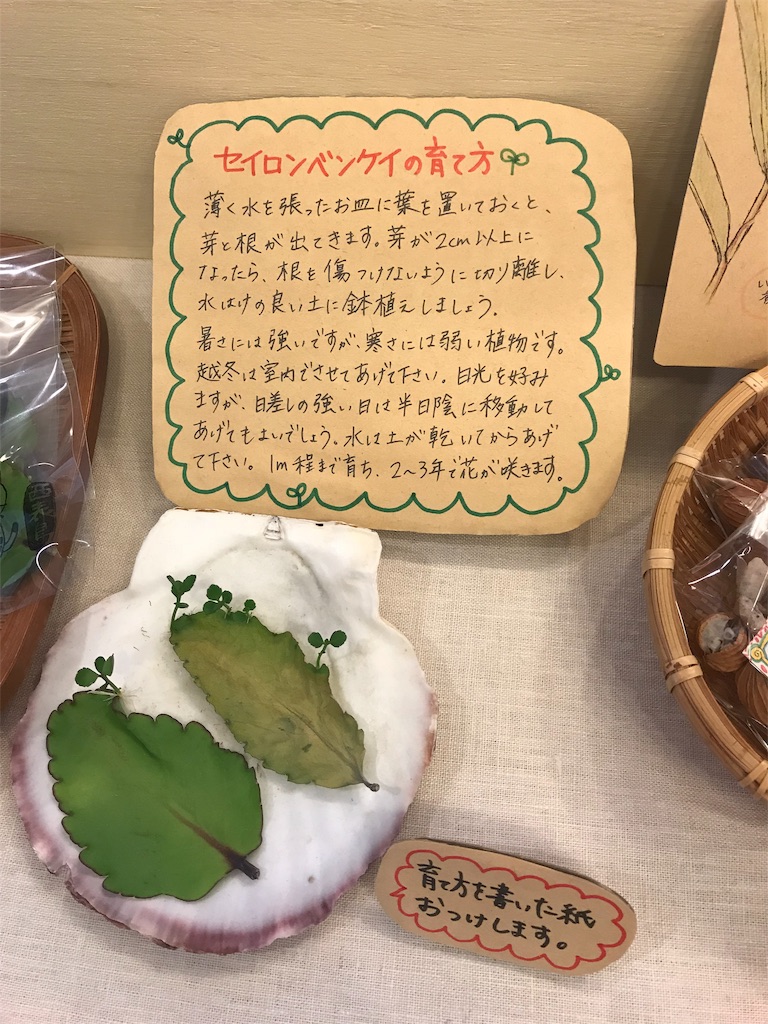 セイロンベンケイの育て方
薄く水を張ったお皿に葉を置いておくと、
芽と根が出てきます。芽が2cm以上に
なったら、根を傷つけないように切り離し、
水はけの良い土に鉢植えしましょう。
暑さには強いですが、寒さには弱い植物です。
越冬は室内でさせてあげて下さい。日光を好み
ますが、日差しの強い日は半日陰に移動して
あげてもよいでしょう。水は土が乾いてからあげ
て下さい。1m程まで育ち、2〜3年で花が咲きます。
育て方を書いた紙
おつけします。